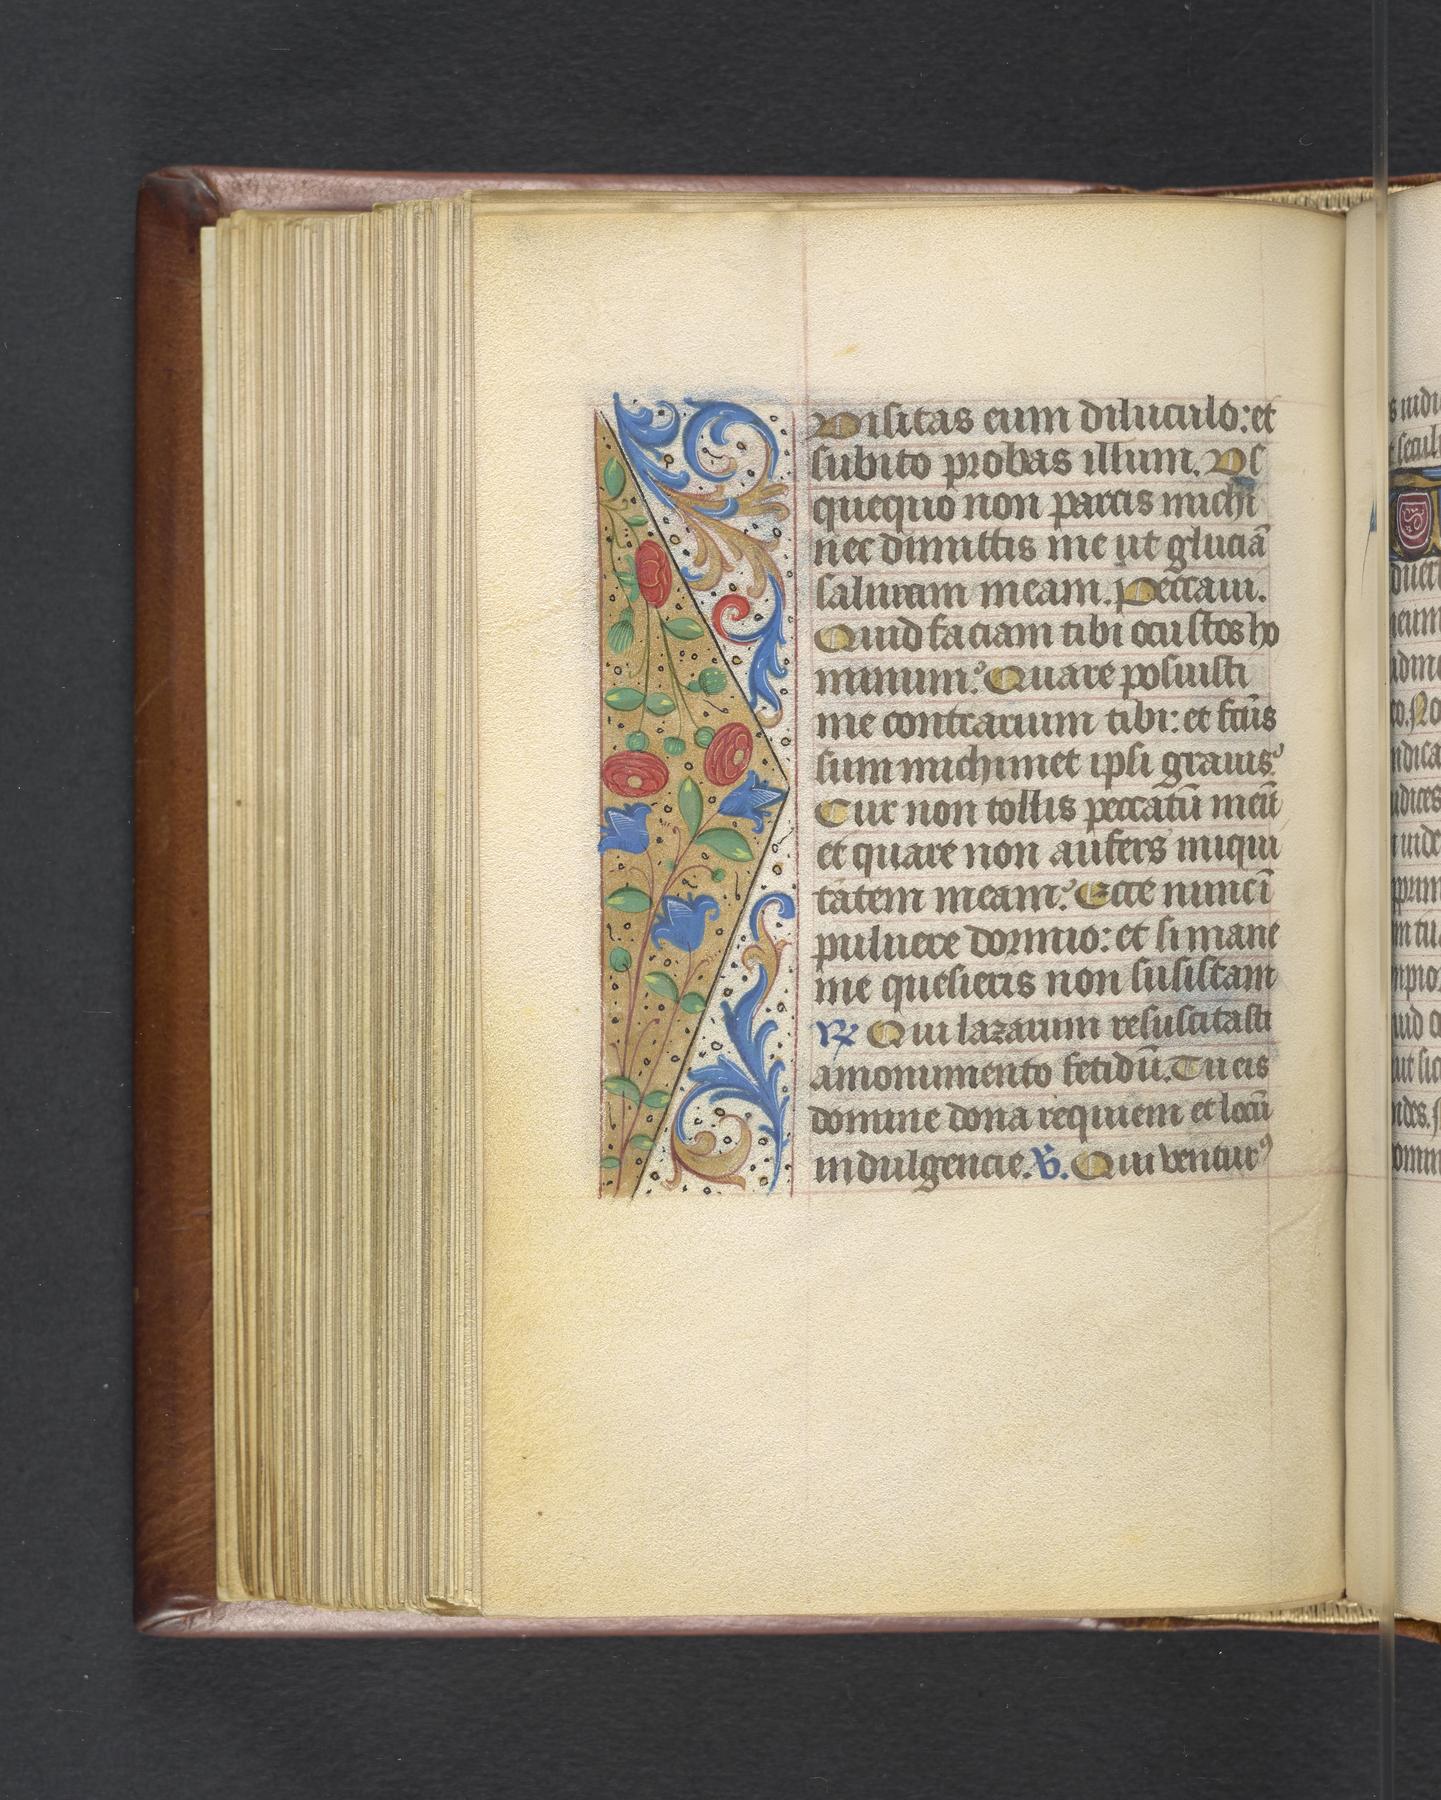 Visitas eum diluculo: et
subito probas illum. Vs
quequo non parcis michi
nec dimittis me ut gluciā
salivam meam. Peccavi.
Quid faciam tibi o custos ho
minum? Quare posuisti
me contrarium tibi: et fcūs
sum michimet ipsi gravis?
Cur non tollis peccatū meū
et quare non aufers iniqui
tatem meam? Ecce nunc ī
pulvere dormio: et si mane
me quesieris non subsistam
℟ Qui lazarum resuscitasti
a monumento fetidū. Tu eis
domine dona requiem et locū
indulgencie. ℣. Qui ventur⁹